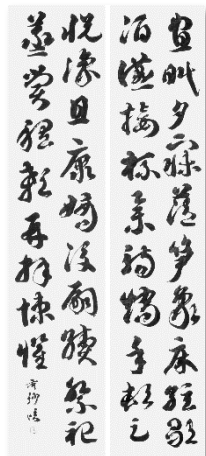 晝眠夕寐藍笋象床絃歌
酒讌接杯舉觴矯手頓足
悅豫且康嫡後嗣續祭祀
蒸嘗稽顙再拜悚懼